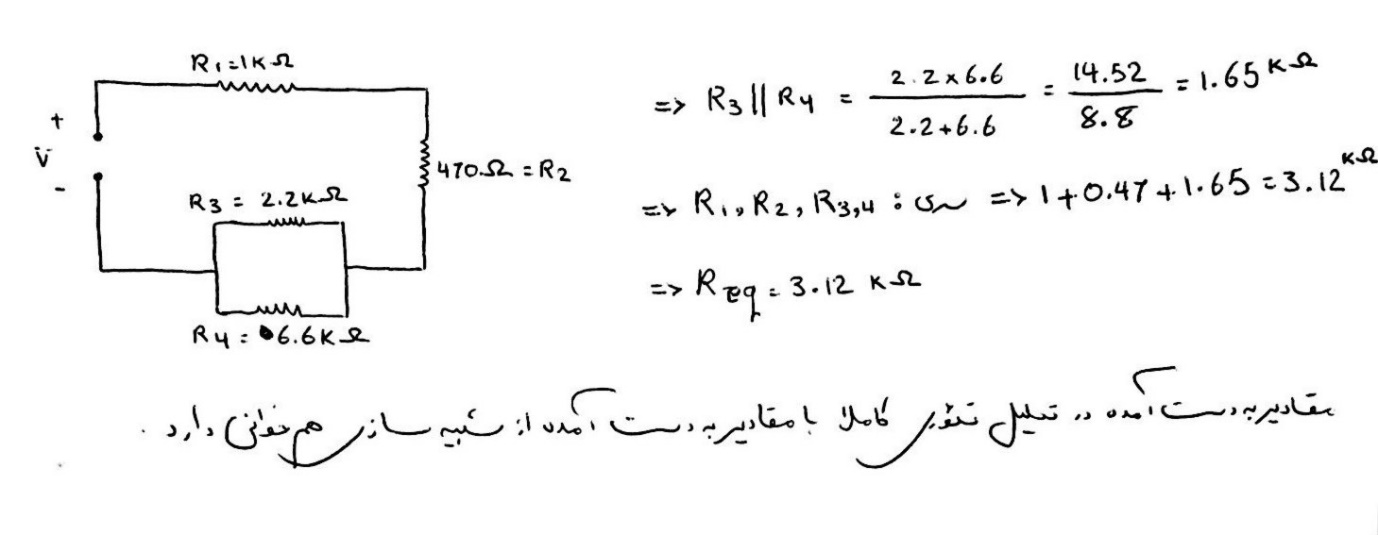 R1=1KΩ
+
V
-
470Ω = R2
R3 = 2.2KΩ
R4 = 6.6KΩ
=> R3 || R4 = 2.2×6.6 / 2.2+6.6 = 14.52 / 8.8 = 1.65 KΩ
=> R1, R2, R3,4 : سری => 1+0.47+1.65 = 3.12 KΩ
=> Req = 3.12 KΩ
مقادیر به دست آمده در تحلیل تئوری کاملا با مقادیر به دست آمده از شبیه سازی هم خوانی دارد .